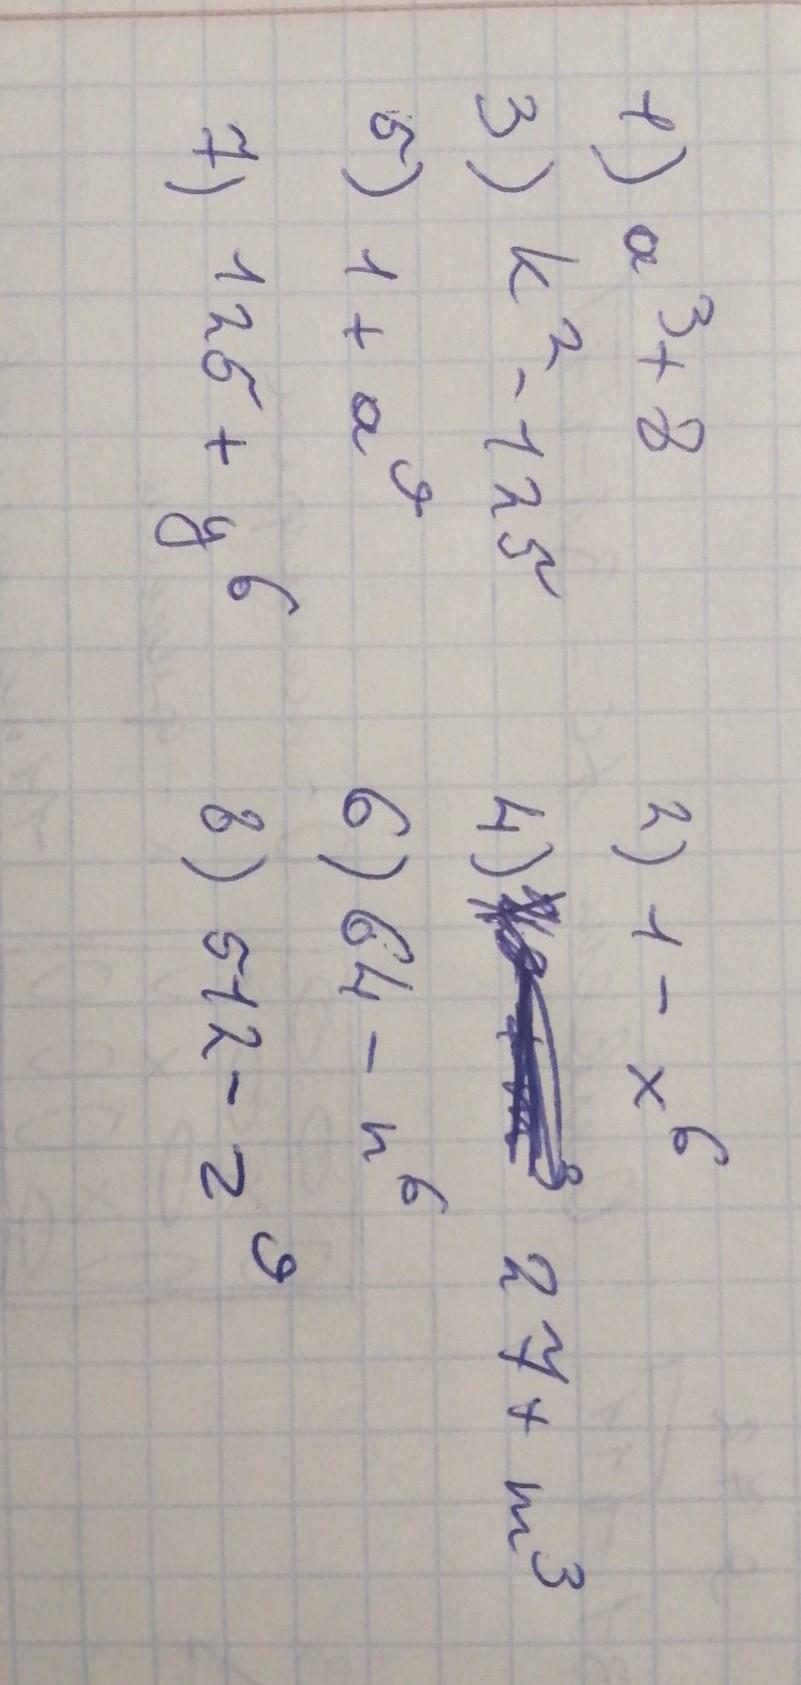 1) a³+8 2) 1-x⁶
3) k²-125 4) 27+m³
5) 1+a⁹ 6) 64-n⁶
7) 125+y⁶ 8) 512-z⁹